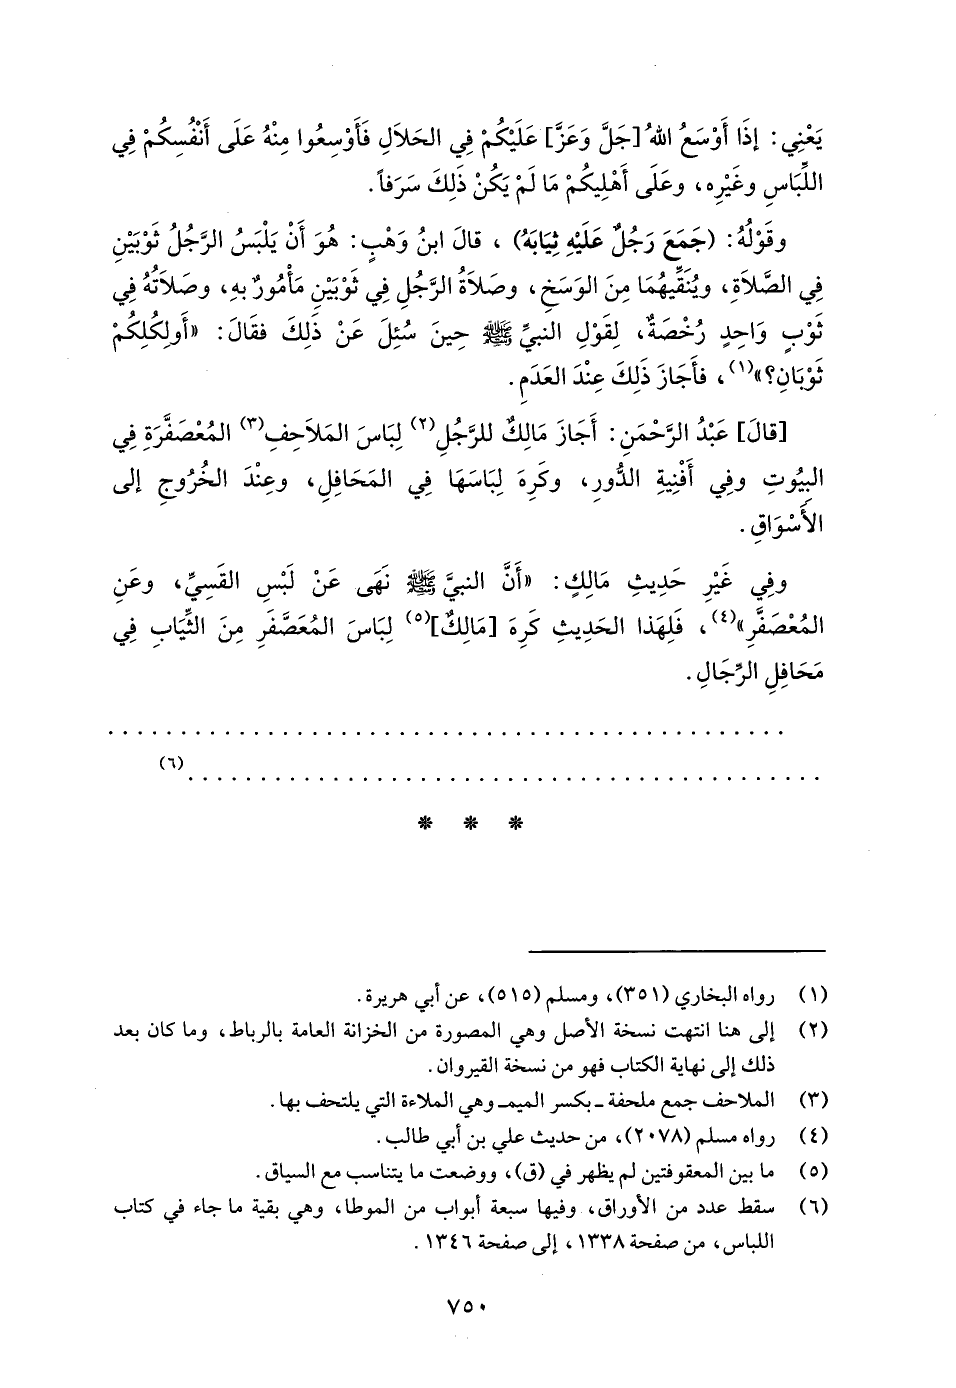 يَعْنِي: إذَا أَوْسَعُ اللهُ [جَلَّ وَعَزَّ] عَلَيْكُمْ فِي الحَلاَلِ فَأَوْسِعُوا مِنْهُ عَلَى أَنْفُسِكُمْ فِي
اللِّبَاسِ وغَيْرِه، وعَلَى أَهْلِيكُمْ مَا لَمْ يَكُنْ ذَلِكَ سَرَفاً.
وقَوْلُهُ: (جَمَعَ رَجُلٌ عَلَيْهِ ثِيَابَهُ) ، قالَ ابنُ وَهْبٍ: هُوَ أَنْ يَلْبَسُ الرَّجُلُ ثَوْبَيْنِ
فِي الصَّلاَةِ، ويُنَقِّيهُمَا مِنَ الوَسَخِ، وصَلاَةُ الرَّجُلِ فِي ثَوْبَيْنِ مَأْمُورٌ بهِ، وصَلاَتُهُ فِي
ثَوْبٍ وَاحِدٍ رُخْصَةٌ، لِقَوْلِ النبيِّ ﷺ حِينَ سُئِلَ عَنْ ذَلِكَ فقَالَ: «أَولِكُلِكُمْ
ثَوْبَانِ؟»(١)، فأَجَازَ ذَلِكَ عِنْدَ العَدَمِ.
[قالَ] عَبْدُ الرَّحْمَنِ: أَجَازَ مَالِكٌ للرَّجُلِ(٢) لِبَاسَ المَلاَحِفِ(٣) المُعْصَفَّرَةِ فِي
البِيُوتِ وفِي أَفْنِيةِ الدُّورِ، وكَرِهَ لِبَاسَهَا فِي المَحَافِلِ، وعِنْدَ الخُرُوجِ إلى
الأَسْوَاقِ.
وفِي غَيْرِ حَدِيثِ مَالِكٍ: «أَنَّ النبيَّ ﷺ نَهَى عَنْ لَبْسِ القَسِيِّ، وعَنِ
المُعْصَفَّرِ»(٤)، فَلِهَذا الحَدِيثِ كَرِهَ [مَالِكٌ](٥) لِبَاسَ المُعَصَّفَرِ مِنَ الثِّيَابِ فِي
مَحَافِلِ الرِّجَالِ.
. . . . . . . . . . . . . . . . . . . . . . . . . . . . . . . . . . . . . . . . . . . . . . .
. . . . . . . . . . . . . . . . . . . . . . . . . . . . . . . . . . . . . . . . . . . . (٦)
* * *
(١) رواه البخاري (٣٥١)، ومسلم (٥١٥)، عن أبي هريرة.
(٢) إلى هنا انتهت نسخة الأصل وهي المصورة من الخزانة العامة بالرباط، وما كان بعد
ذلك إلى نهاية الكتاب فهو من نسخة القيروان.
(٣) الملاحف جمع ملحفة ـ بكسر الميم ـ وهي الملاءة التي يلتحف بها.
(٤) رواه مسلم (٢٠٧٨)، من حديث علي بن أبي طالب.
(٥) ما بين المعقوفتين لم يظهر في (ق)، ووضعت ما يتناسب مع السياق.
(٦) سقط عدد من الأوراق، وفيها سبعة أبواب من الموطا، وهي بقية ما جاء في كتاب
اللباس، من صفحة ١٣٣٨، إلى صفحة ١٣٤٦.
٧٥٠